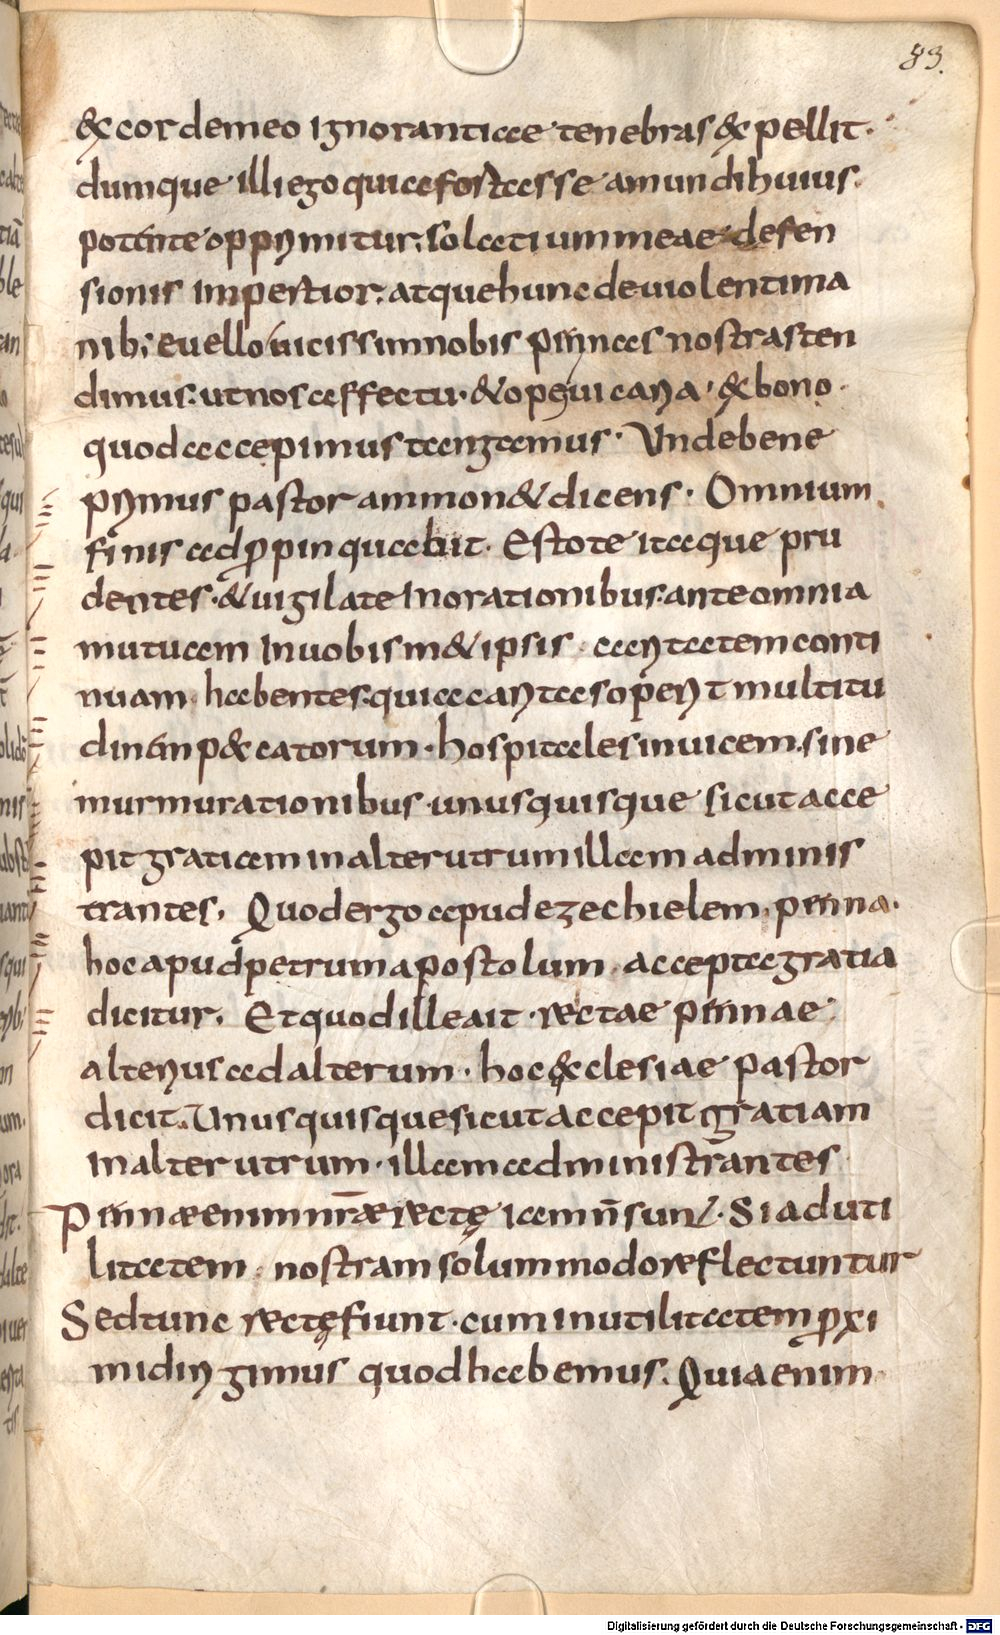 83.
& cor de meo ignorantiae tenebras expellit.
dumque illi ego qui a fortasse a mundi huius.
potente opprimitur. solatium meae defen
sionis impertior. atque hunc de uiolenti ma
nib; euello uicissim nobis pinnas nostras ten
dimus. ut nos affectu. & ope uicaria. & bono.
quod accepimus tangamus. Unde bene
primus pastor ammon& dicens. Omnium
finis adpropinquabit. Estote itaque pru
dentes. & uigilate in orationibus. ante omnia
mutuam in uobism& ipsis caritatem conti
nuam habentes. quia caritas operit multitu
dinem p&catorum. hospitales inuicem. sine
murmurationibus. unusquisque sicut acce
pit gratiam in alterutrum illam adminis
trantes. Quod ergo apud ezechielem. pinna.
hoc apud petrum apostolum. accepta gratia
dicitur. Et quod ille ait. rectae pinnae
alterius ad alterum. hoc &clesiae pastor
dicit. Unusquisque sicut accepit gratiam
in alterutrum. illam administrantes
Pinnae enim nr̄ae rectę iam n̄ sunt. Si ad uti
litatem nostram solummodo reflectuntur
Sed tunc rectę fiunt. cum in utilitatem proxi
mi dirigimus quod habemus. Quia enim
Digitalisierung gefördert durch die Deutsche Forschungsgemeinschaft - DFG